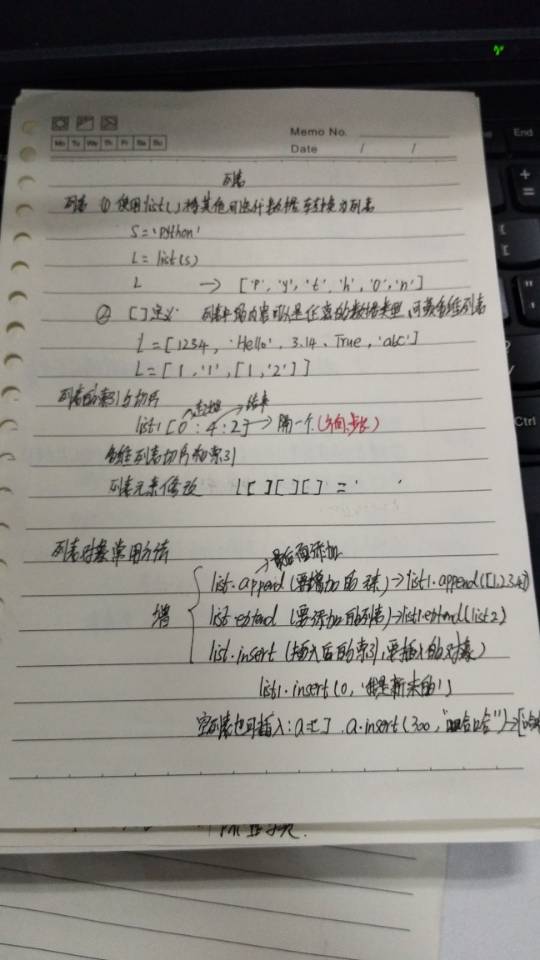 Memo No.
Mo Tu We Th Fr Sa Su
Date / /
列表
列表 ① 使用list()将其他可迭代数据转换为列表
S='python'
L=list(s)
L → ['P','y','t','h','o','n']
② []定义 列表中的内容可以是任意的数据类型,可嵌套多维列表
l=[1234,'Hello',3.14,True,'abc']
L=[1,'1',[1,'2']]
列表的索引与切片
起始 结束
list1[0:4:2]→隔一个(方向,步长)
多维列表切片和索引
列表元素修改 l[][][]=' '
列表对象常用方法
→最后面添加
增 list.append(要增加的元素)→list1.append([1,2,3,4])
list.extend(要添加的列表)→list1.extend(list2)
list.insert(插入后的索引,要插入的对象)
list1.insert(0,'我是新来的')
空列表也可插入:a=[] a.insert(300,"哈哈")→[
End
Ctrl